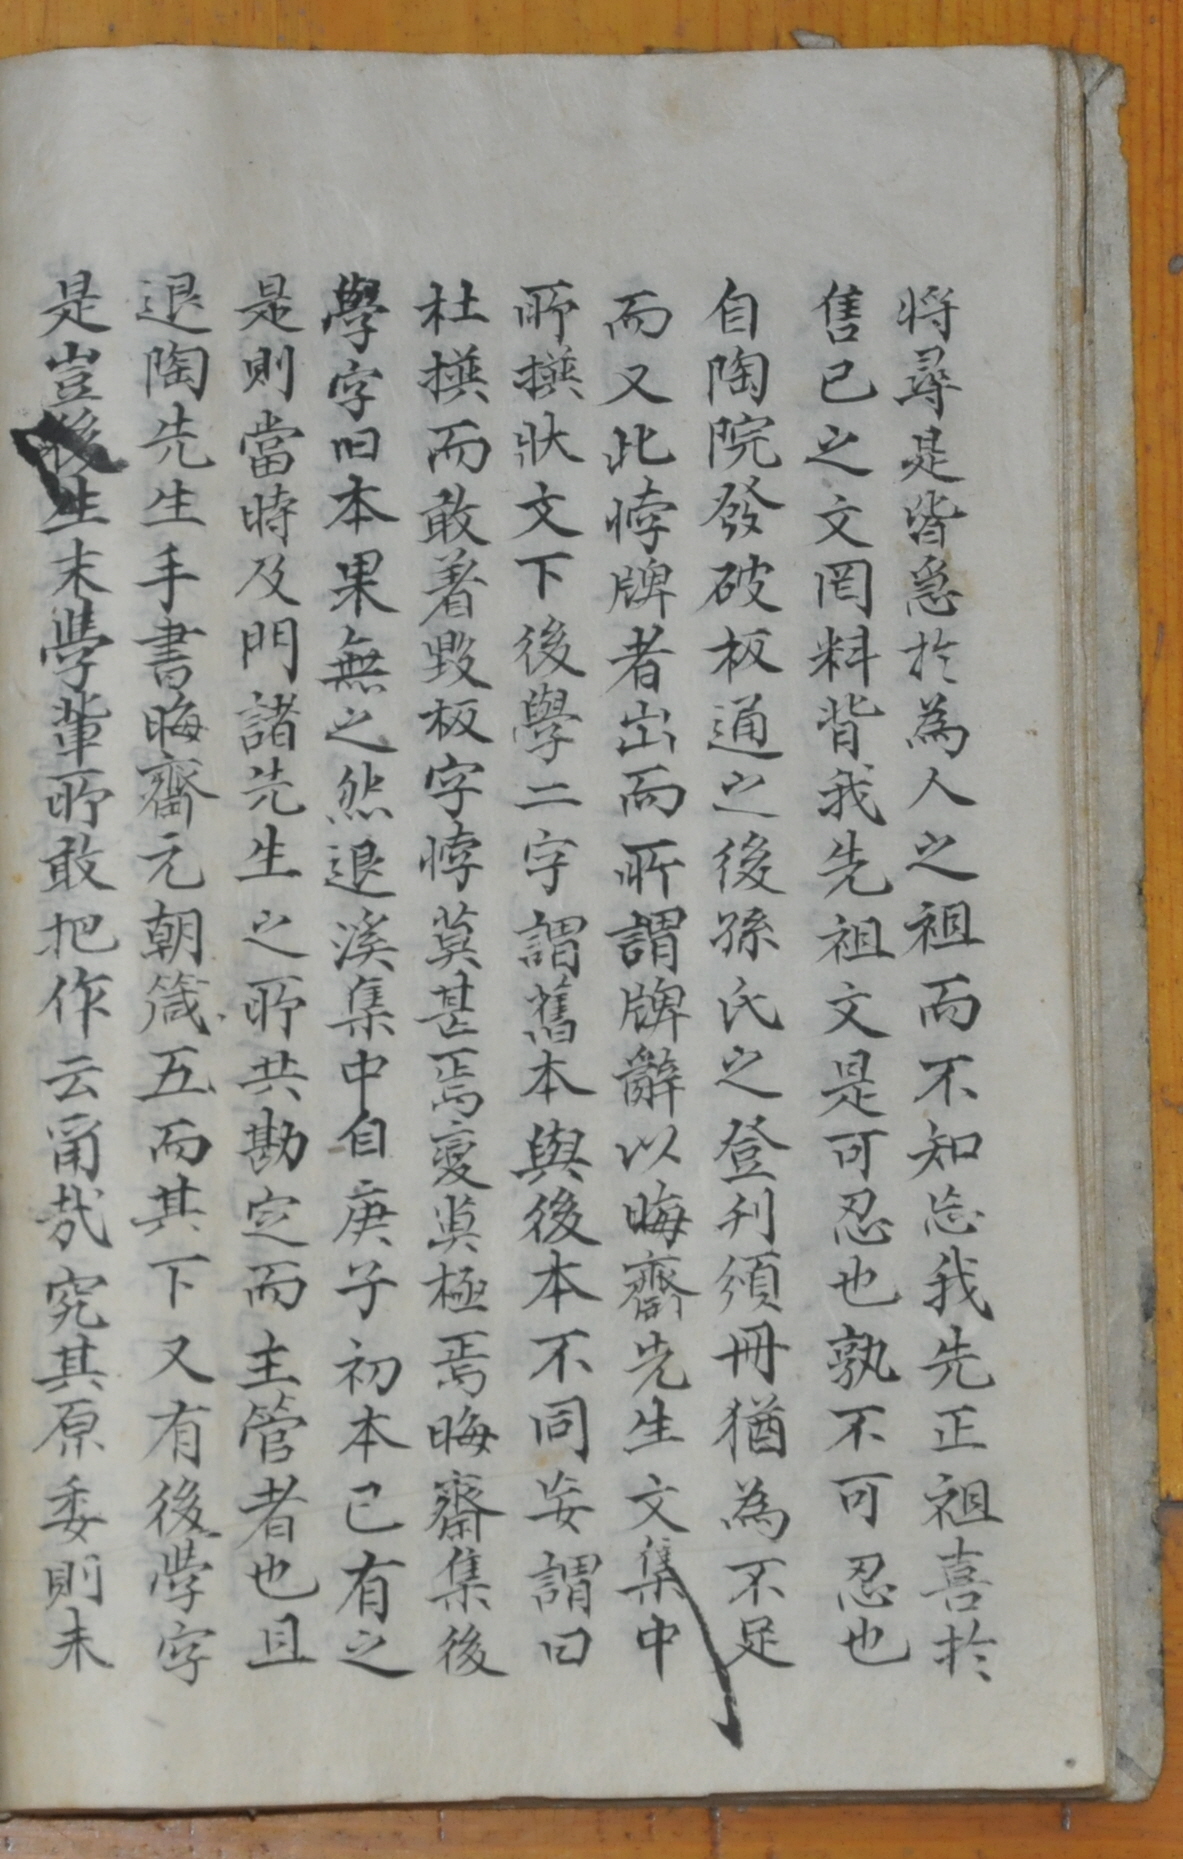 将尋是皆急於為人之祖而不知忘我先正祖喜於
售已之文罔料背我先祖文是可忍也孰不可忍也
自陶院發破板通之後孫氏之登刋須冊猶為不足
而又此悖牌者出而所謂牌辭以晦齋先生文集中
所撰狀文下後學二字謂舊本與後本不同妄謂曰
杜撰而敢着毀板字悖莫甚焉變莫極焉晦齋集後
學字旧本果無之然退溪集中自庚子初本已有之
是則當時及門諸先生之所共勘定而主管者也且
退陶先生手書晦齋元朝箴五而其下又有後學字
是豈後生末學輩所敢把作云甭哉究其原委則未